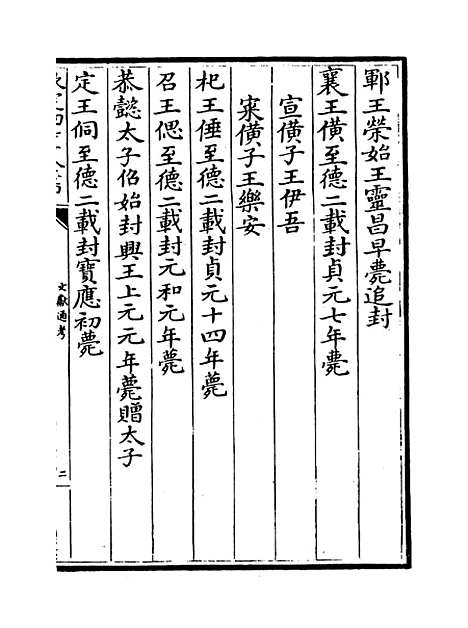 鄆王榮始王靈昌早薨追封
襄王僙至德二載封貞元七年薨
宣僙子王伊吾
寀僙子王樂安
𣏌王倕至德二載封貞元十四年薨
召王偲至德二載封元和元年薨
恭懿太子佋始封興王上元元年薨贈太子
定王侗至德二載封寶應初薨
文獻通考
二